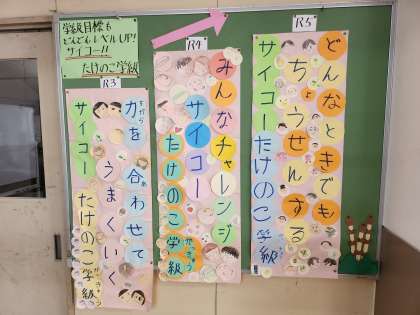 学級目標も
どんどんレベルUP!
サイコー!!
たけのこ学級
R3
力を合わせて
うまくいく
サイコー
たけのこ学級
R4
みんなチャレンジ
サイコー
たけのこ学級
R5
どんなときでも
ちょうせんする
サイコーたけのこ学級